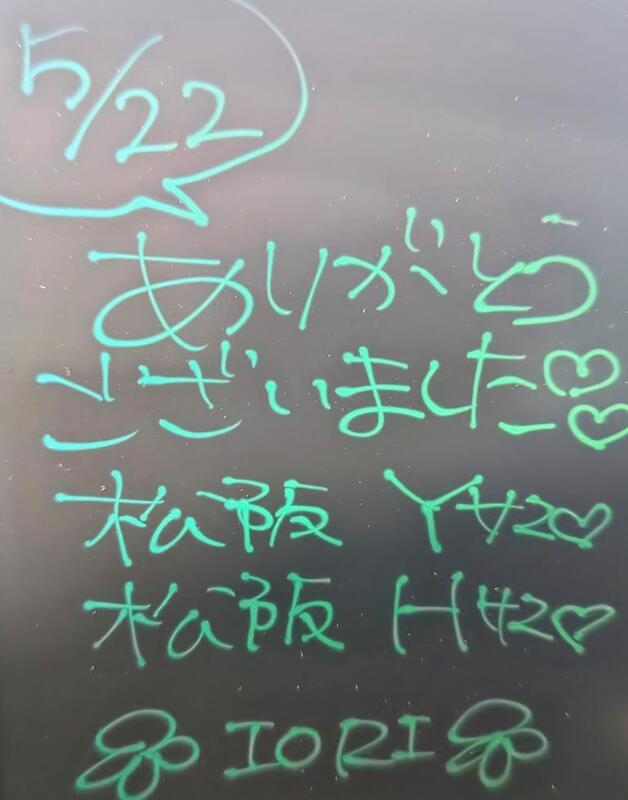 5/22
ありがとう
ございました♡♡
松阪 Yサン♡
松阪 Hサン♡
IORI